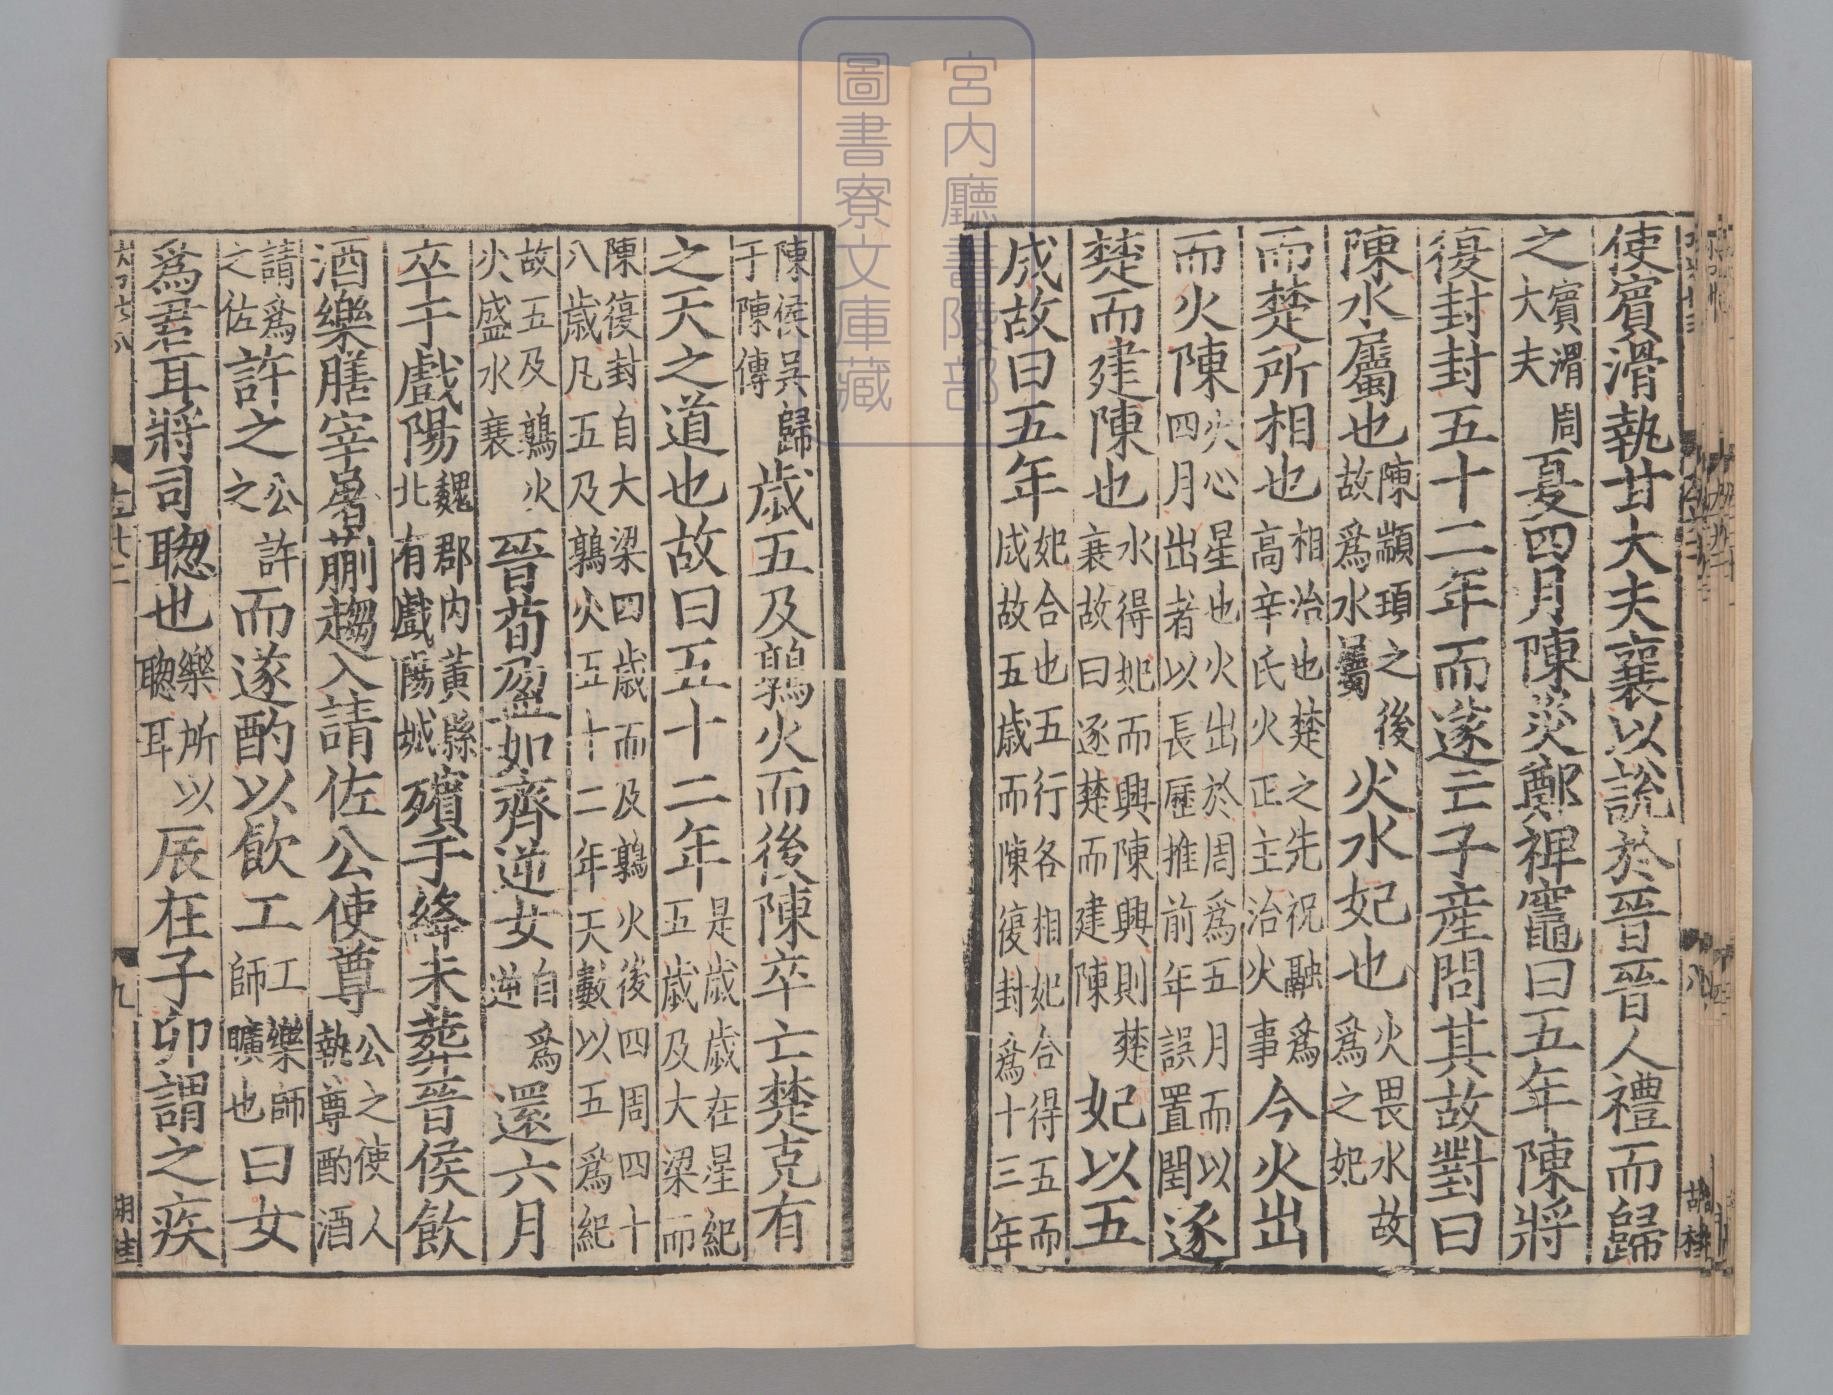 使賓滑執甘大夫襄以說於晉晉人禮而歸
之賓滑周大夫夏四月陳災鄭裨竈曰五年陳將
復封封五十二年而遂亡子產問其故對曰
陳水屬也陳顓頊之後故爲水屬火水妃也火畏水故爲之妃
而楚所相也相治也楚之先祝融爲高辛氏火正主治火事今火出
而火陳火心星也火出於周爲五月而以四月出者以長歷推前年誤置閏逐
楚而建陳也水得妃而興陳興則楚衰故曰逐楚而建陳妃以五
成故曰五年妃合也五行各相妃合得五而成故五歲而陳復封爲十三年
陳侯吳歸于陳傳歲五及鶉火而後陳卒亡楚克有
之天之道也故曰五十二年是歲歲在星紀五歲及大梁而
陳復封自大梁四歲而及鶉火後四周四十八歲凡五及鶉火五十二年天數以五爲紀
故五及鶉火火盛水衰晉荀盈如齊逆女自爲逆還六月
卒于戲陽魏郡內黃縣北有戲陽城殯于絳未葬晉侯飲
酒樂膳宰屠蒯趨入請佐公使尊公之使人執尊酌酒
請爲之佐許之公許之而遂酌以飲工工樂師師曠也曰女
爲君耳將司聰也樂所以聰耳辰在子卯謂之疾
九
宮內廳書陵部
圖書寮文庫藏